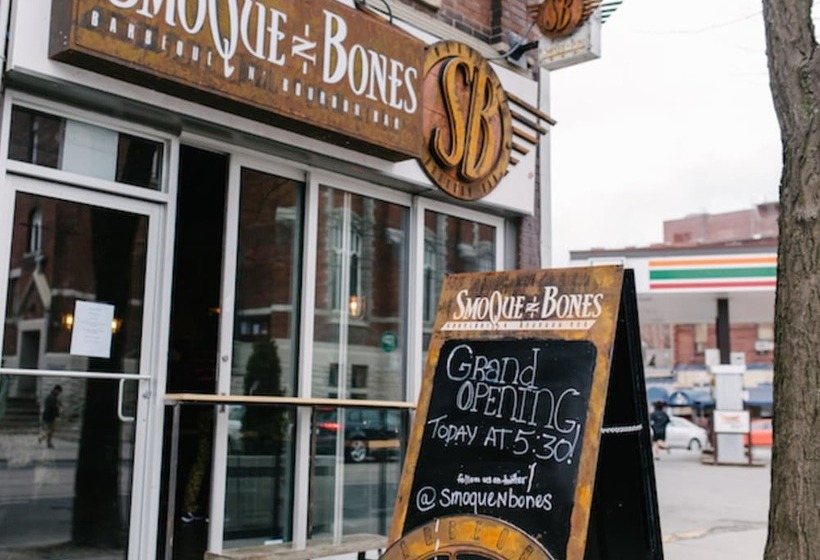 SMOQUE N BONES
BARBEQUE N BOURBON BAR
SB
SB
SMOQUE N BONES
BARBEQUE N BOURBON BAR
GRand
OPENING
TODAY AT 5:30!
follow us on twitter!
@smoqueNbones